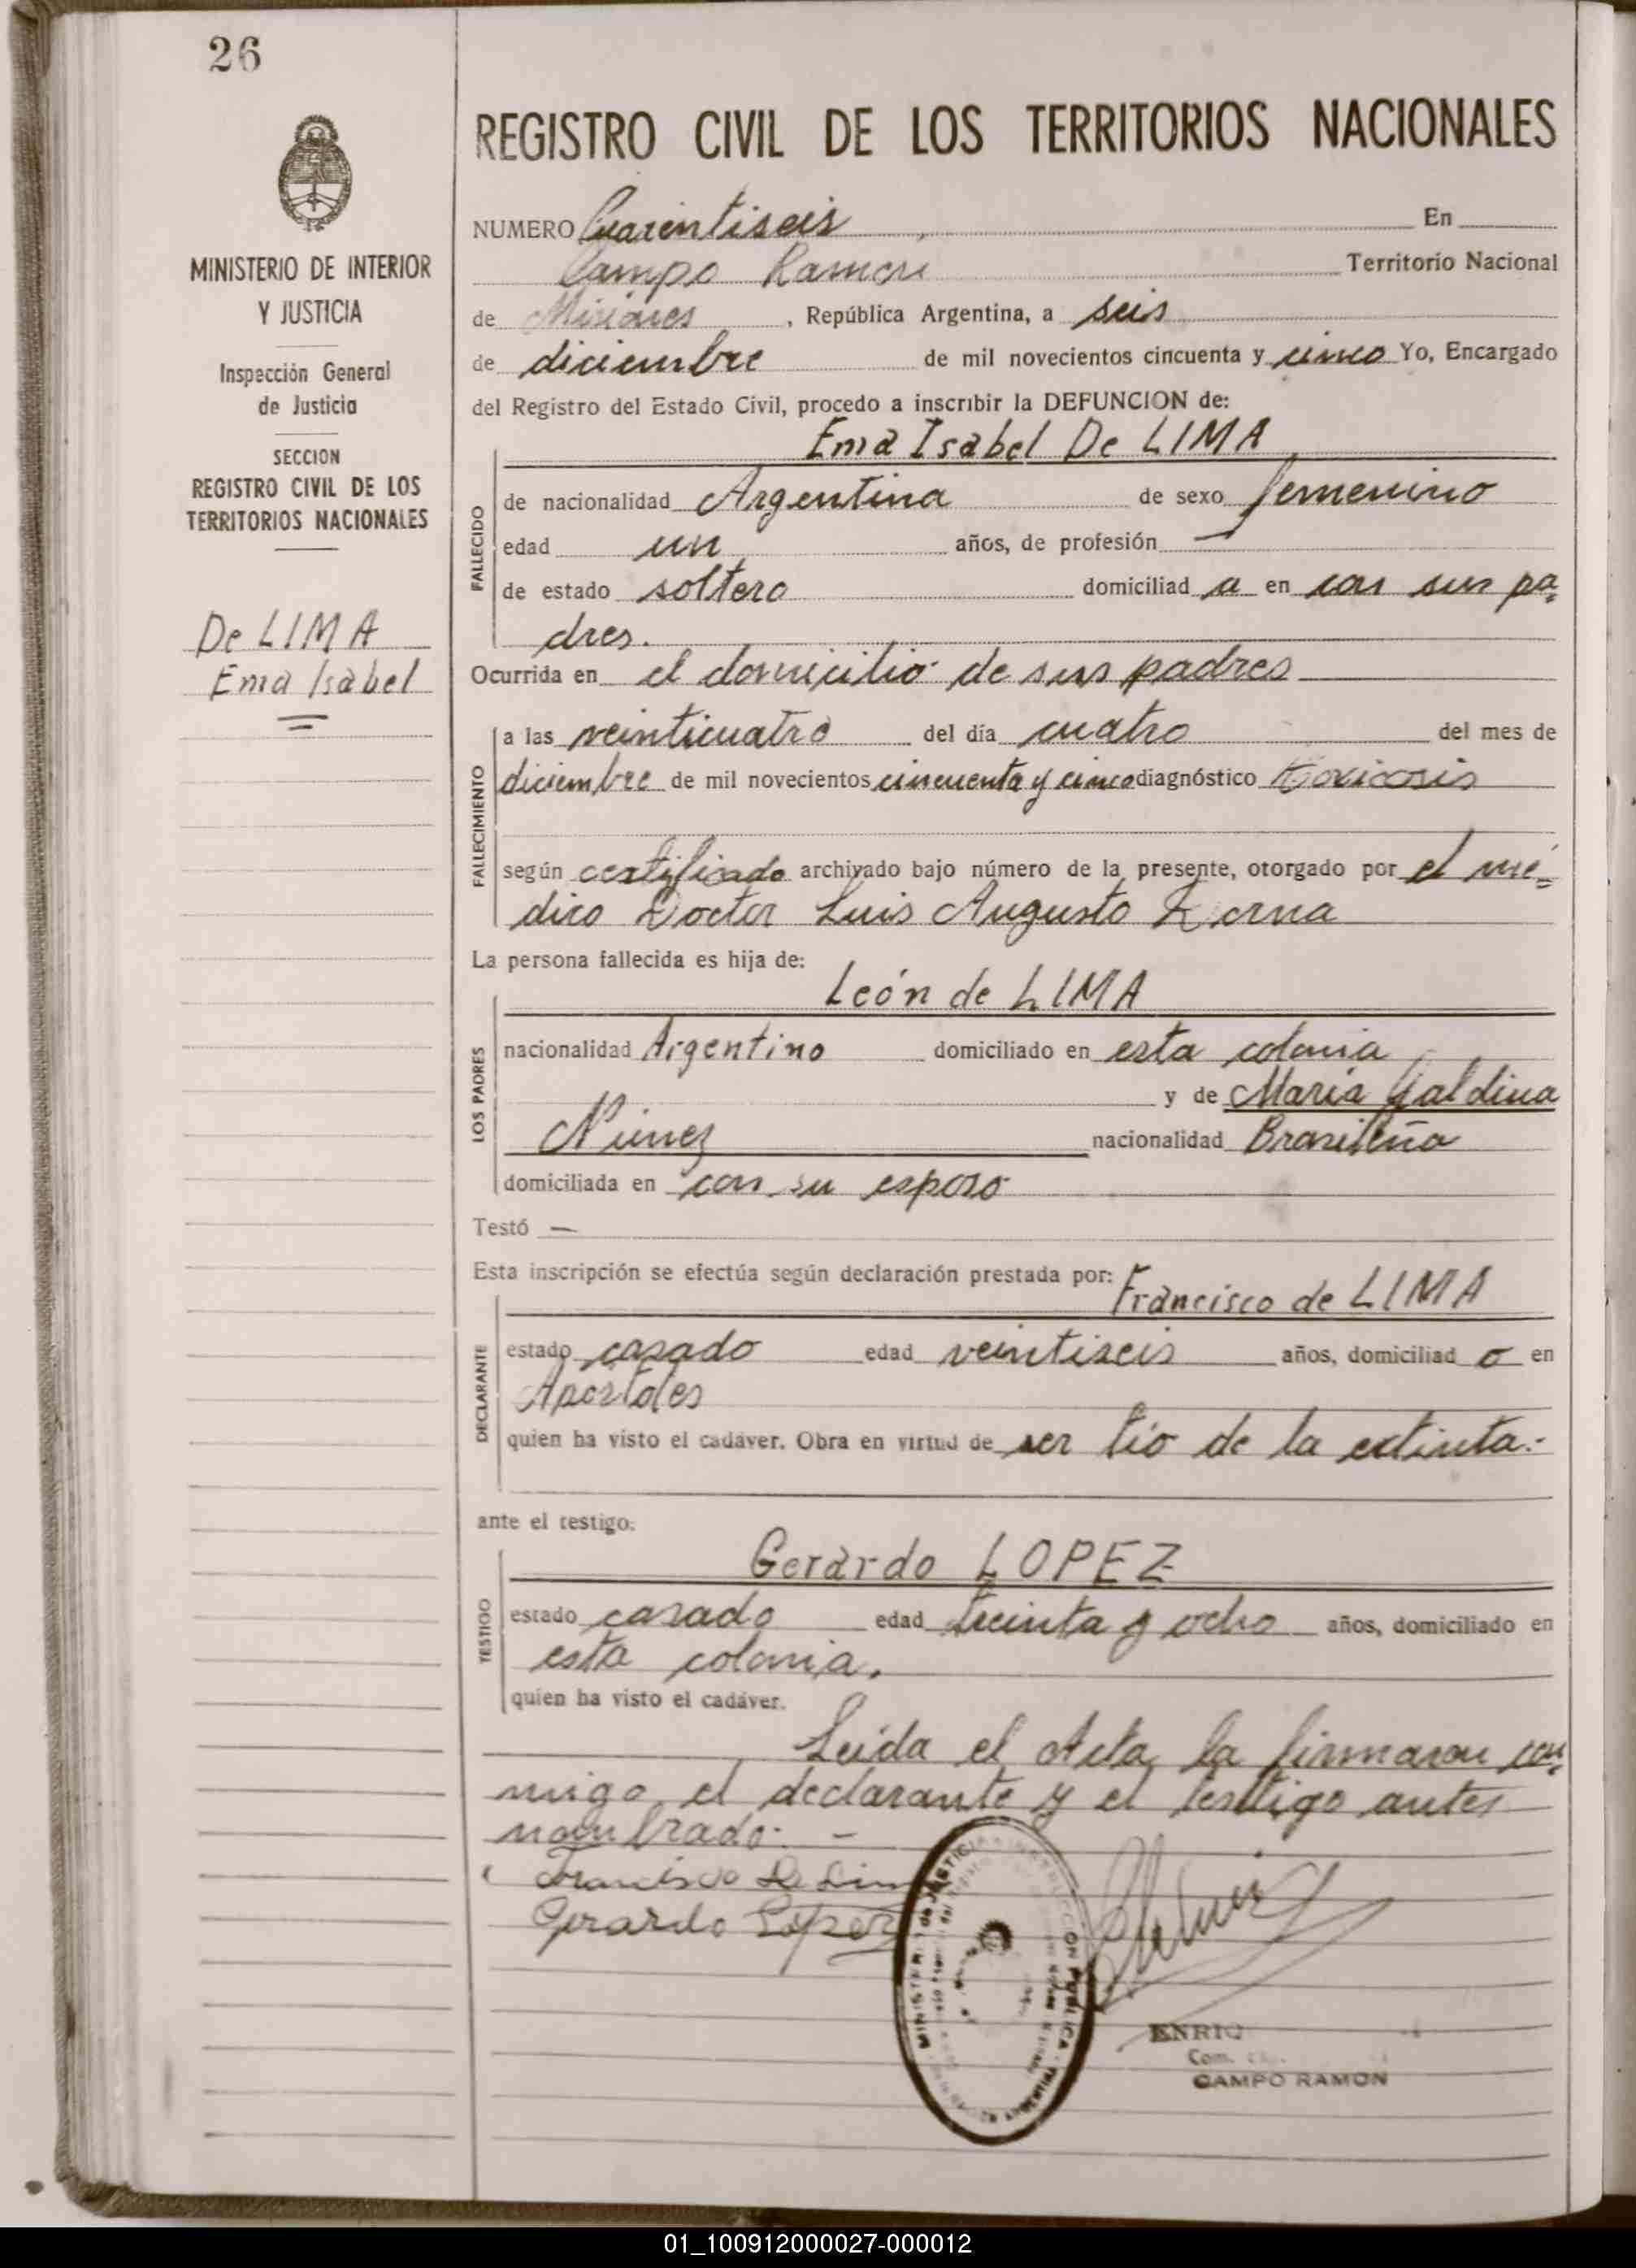 26
REGISTRO CIVIL DE LOS TERRITORIOS NACIONALES
MINISTERIO DE INTERIOR
Y JUSTICIA
Inspección General
de Justicia
SECCION
REGISTRO CIVIL DE LOS
TERRITORIOS NACIONALES
De LIMA
Ema Isabel
NUMERO Cuarentiseis En
Campo Ramon Territorio Nacional
de Misiones, República Argentina, a seis
de diciembre de mil novecientos cincuenta y cinco Yo, Encargado
del Registro del Estado Civil, procedo a inscribir la DEFUNCION de:
Ema Isabel De LIMA
FALLECIDO
de nacionalidad Argentina de sexo femenino
edad un años, de profesión —
de estado soltera domiciliad a en con sus pa=
dres.
Ocurrida en el domicilio de sus padres
FALLECIMIENTO
a las veinticuatro del día cuatro del mes de
diciembre de mil novecientos cincuenta y cinco diagnóstico Toxicosis
según certificado archivado bajo número de la presente, otorgado por el mé=
dico Doctor Luis Augusto
La persona fallecida es hija de:
León de LIMA
LOS PADRES
nacionalidad Argentino domiciliado en esta colonia
y de María Galdina
Núnez nacionalidad Brasileña
domiciliada en con su esposo
Testó —
Esta inscripción se efectúa según declaración prestada por: Francisco de LIMA
DECLARANTE
estado casado edad veintiseis años, domiciliad o en
Apóstoles
quien ha visto el cadáver. Obra en virtud de ser tío de la extinta.-
ante el testigo:
Gerardo LOPEZ
TESTIGO
estado casado edad treinta y ocho años, domiciliado en
esta colonia.
quien ha visto el cadáver.
Leída el Acta, la firmaron con=
migo, el declarante y el testigo antes
nombrado. —
Francisco De Lima
Gerardo Lopez
MINISTERIO de JUSTICIA INSTRUCCION PUBLICA
ENRIQ
Com.
CAMPO RAMON
01_100912000027-000012